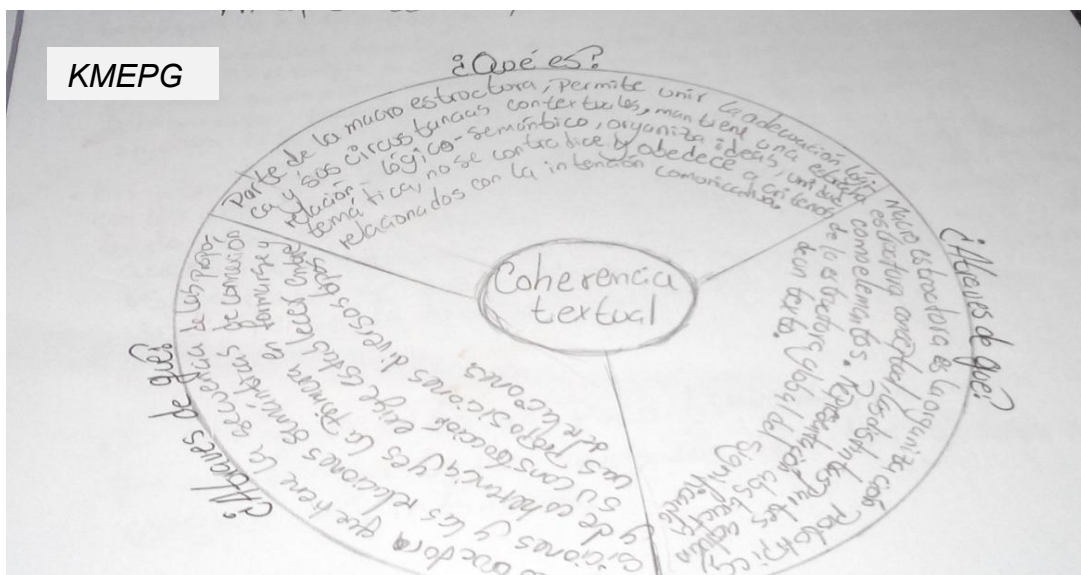 KMEPG
¿Qué es?
Parte de la macro estructura, permite unir la adecuación lógi-
ca y sus circustancias contextuales, mantiene una estrecha
relación lógico-semántico, organiza ideas, unidad
temática, no se contradice y obedece a criterios
relacionados con la intención comunicativa.
Coherencia
textual
¿Atraves de qué?
Macro estructura es la organización
estructura conceptual y las distintas partes
como elementos. Representación abstracta
de la estructura global del significado
de un texto.
¿Atraves de qué?
que tiene la secuencia de las propo-
siciones y las relaciones semánticas de conexión
y de coherencia y es la forma en formarse y
su construcción exige establecer entre
las proposiciones diversos tipos
de relaciones